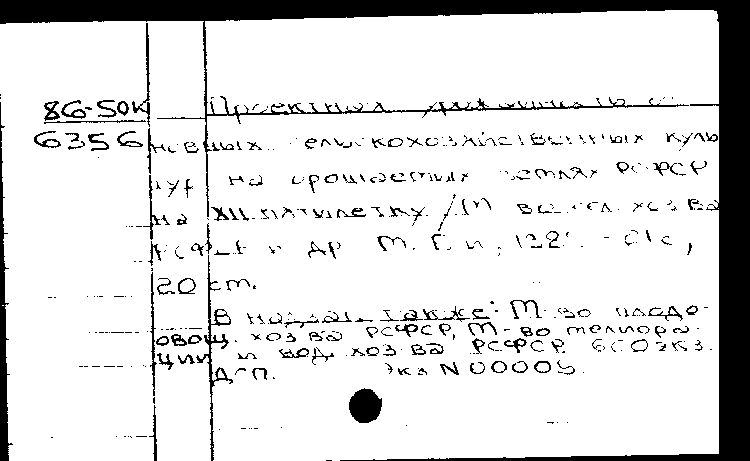 86-50К Проектная урожайность ос-
6356 новных сельскохозяйственных куль
тур на орошаемых землях РСФСР
на XII пятилетку / М-во сел. хоз-ва
РСФСР и др. М. Б. и, 61с,
20 см.
В надзаг. также: М-во плодо-
овощ. хоз-ва РСФСР, М-во мелиора-
ции и вод. хоз-ва РСФСР. 600 экз.
ДСП. Экз N 00005.